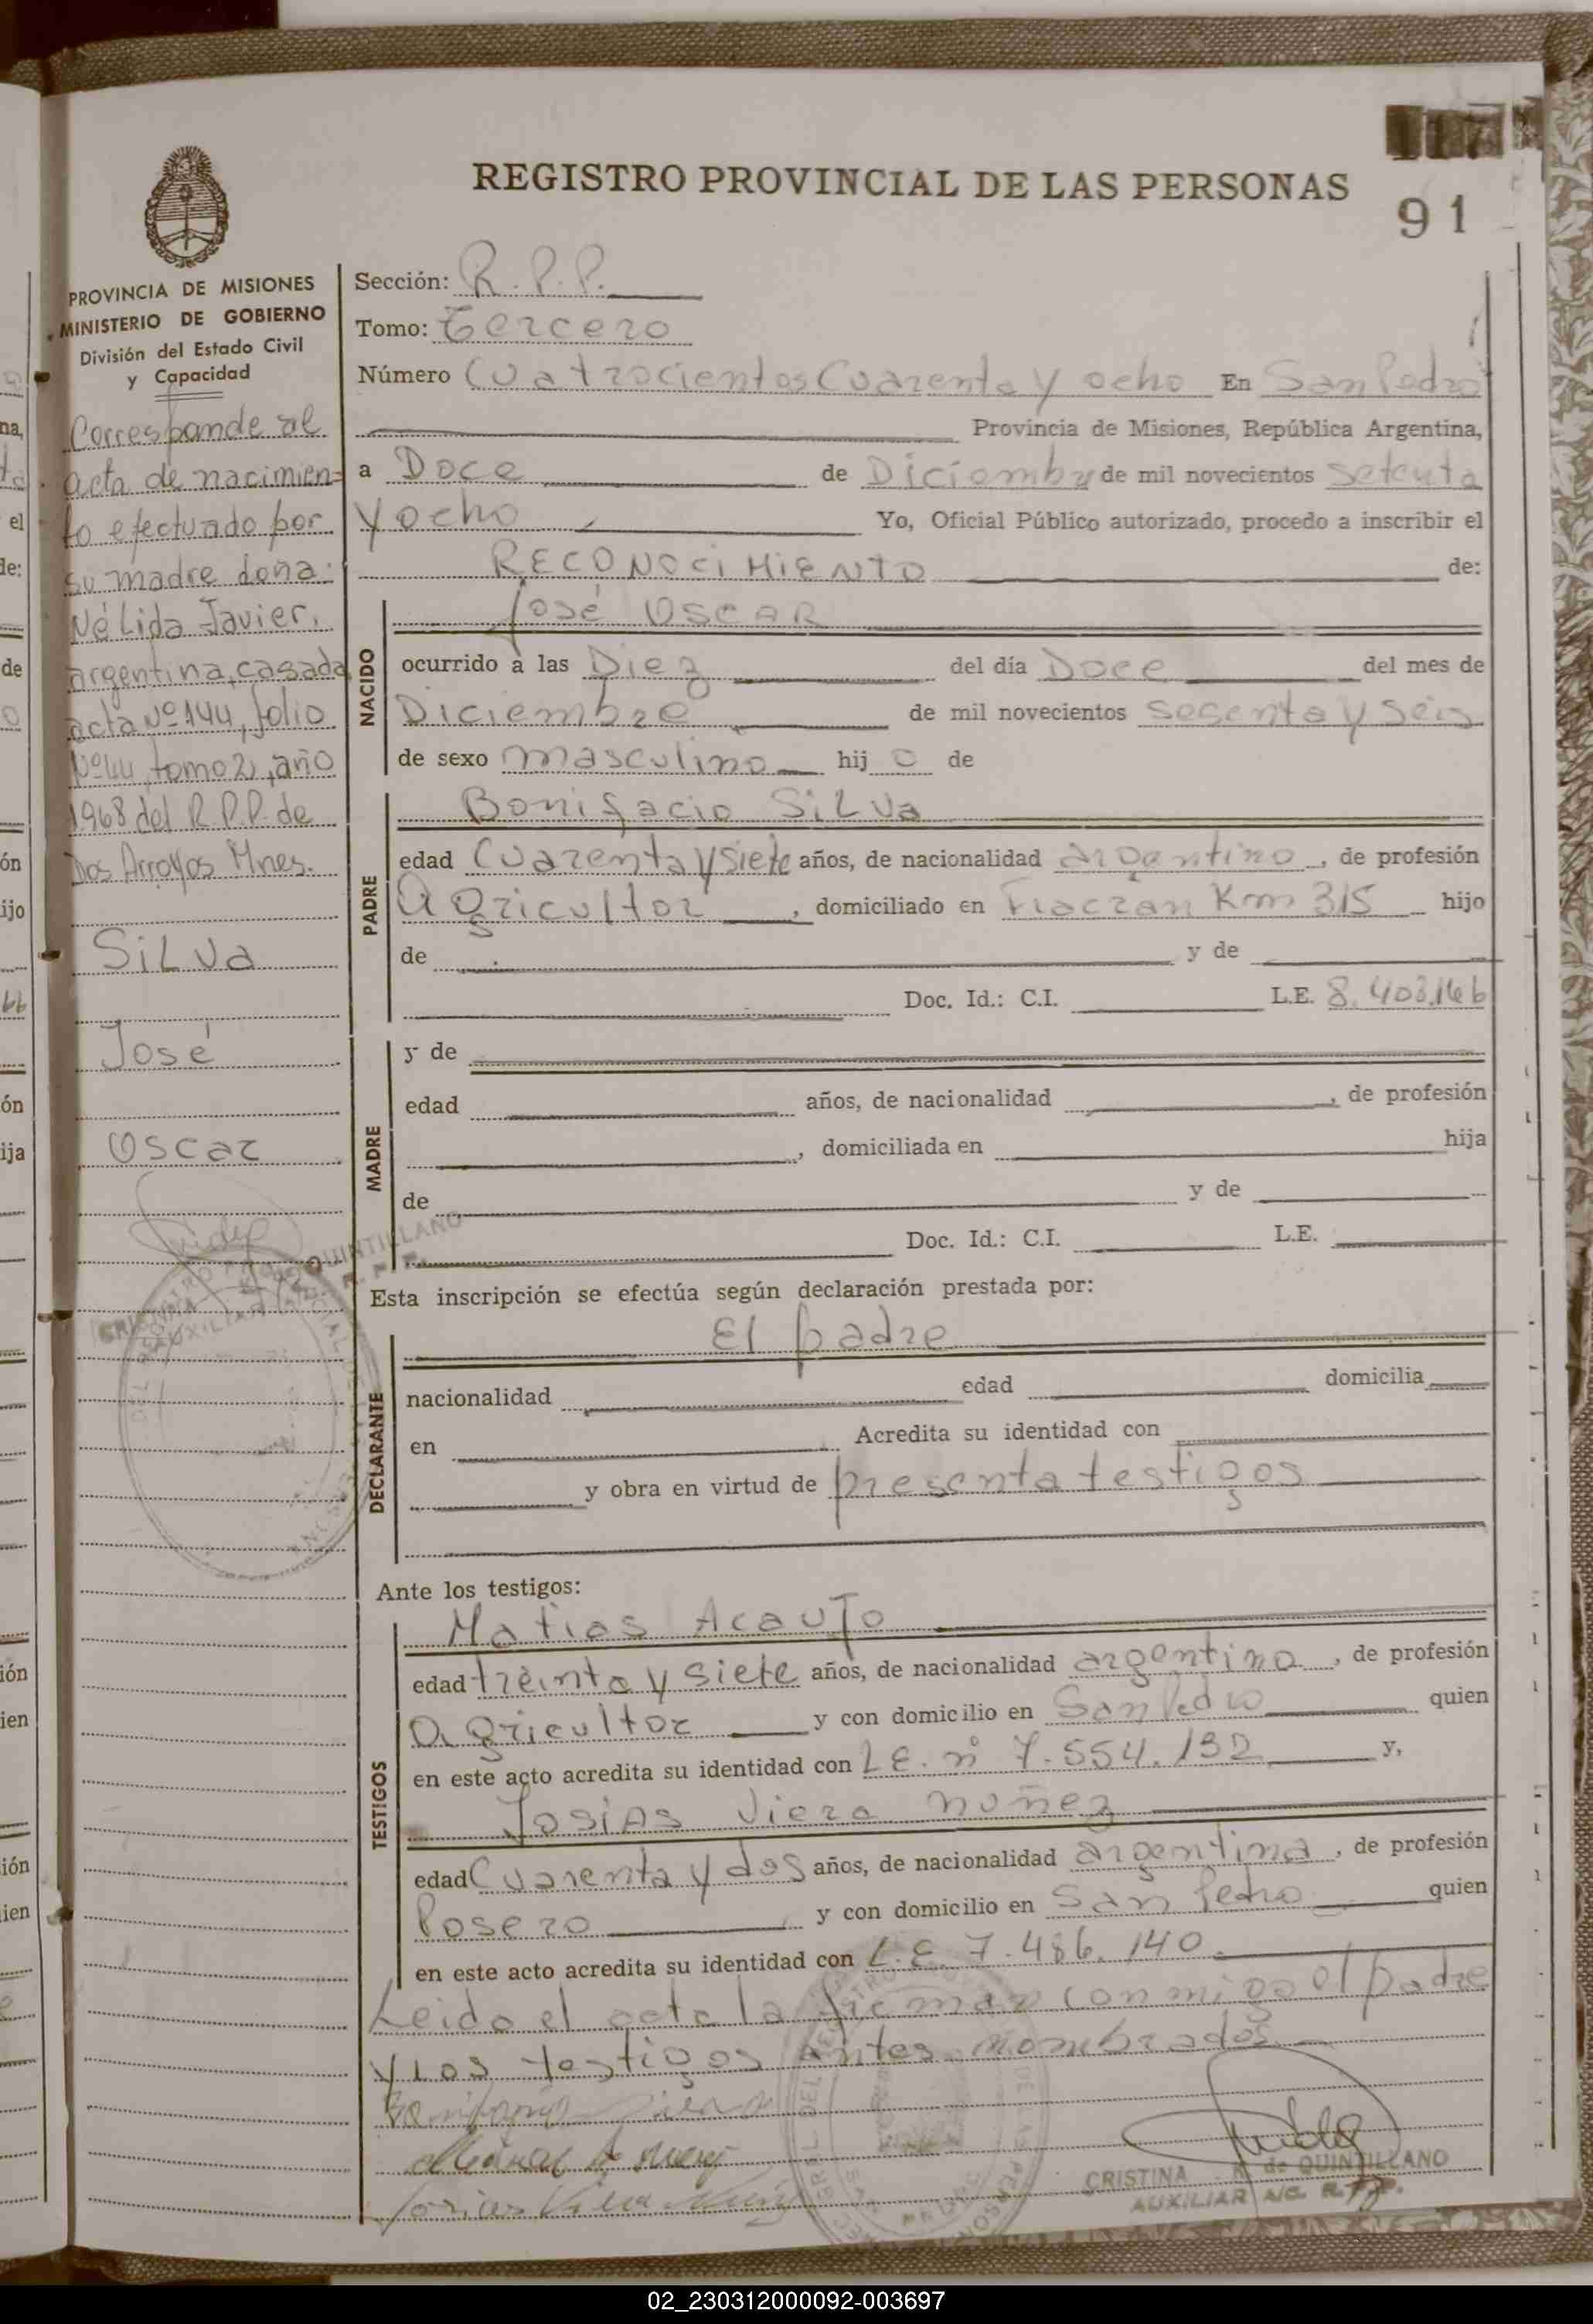 REGISTRO PROVINCIAL DE LAS PERSONAS
117
91
PROVINCIA DE MISIONES
MINISTERIO DE GOBIERNO
División del Estado Civil
y Capacidad
Corresponde al
acta de nacimien=
to efectuado por
su madre doña:
Nélida Javier,
argentina, casada
acta Nº 144, folio
Nº 44, tomo 2, año
1968 del R.P.P. de
Dos Arroyos Mnes.
SiLVa
José
Oscar
Sección: R.P.P.
Tomo: Tercero
Número Cuatrocientos Cuarenta y ocho En San Pedro
Provincia de Misiones, República Argentina,
a Doce de Diciembre de mil novecientos setenta
y ocho Yo, Oficial Público autorizado, procedo a inscribir el
RECONOCIMIENTO de:
NACIDO
José OSCAR
ocurrido a las Diez del día Doce del mes de
Diciembre de mil novecientos sesenta y seis
de sexo masculino hij o de
PADRE
Bonifacio SiLVa
edad Cuarenta y siete años, de nacionalidad argentino, de profesión
agricultor, domiciliado en Fracran Km 315 hijo
de y de
Doc. Id.: C.I. L.E. 8.403.146
MADRE
y de
edad años, de nacionalidad , de profesión
, domiciliada en hija
de y de
Doc. Id.: C.I. L.E.
Esta inscripción se efectúa según declaración prestada por:
DECLARANTE
El padre
nacionalidad edad domicilia
en Acredita su identidad con
y obra en virtud de presenta testigos
Ante los testigos:
TESTIGOS
Matias Acaujo
edad treinta y siete años, de nacionalidad argentino, de profesión
agricultor y con domicilio en San Pedro quien
en este acto acredita su identidad con L.E. nº 7.554.132 y,
Josias Viera nuñez
edad Cuarenta y dos años, de nacionalidad argentina, de profesión
Posero y con domicilio en San Pedro quien
en este acto acredita su identidad con L.E. 7.486.140
Leida el acta la firman conmigo el padre
y los testigos antes nombrados
CRISTINA de QUINTILLANO
AUXILIAR A/C. R.P.P.
02_230312000092-003697